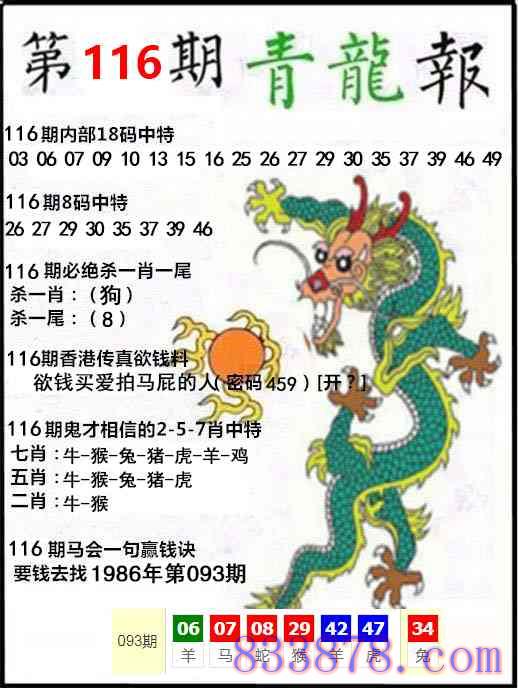 第116期青龍報
116期内部18码中特
03 06 07 09 10 13 15 16 25 26 27 29 30 35 37 39 46 49
116期8码中特
26 27 29 30 35 37 39 46
116期必绝杀一肖一尾
杀一肖：（狗）
杀一尾：（8）
116期香港传真欲钱料
欲钱买爱拍马屁的人（密码459）[开？]
116期鬼才相信的2-5-7肖中特
七肖：牛-猴-兔-猪-虎-羊-鸡
五肖：牛-猴-兔-猪-虎
二肖：牛-猴
116期马会一句赢钱诀
要钱去找1986年第093期
093期 06 07 08 29 42 47 34
羊 马 蛇 猴 羊 虎 兔
833878.com